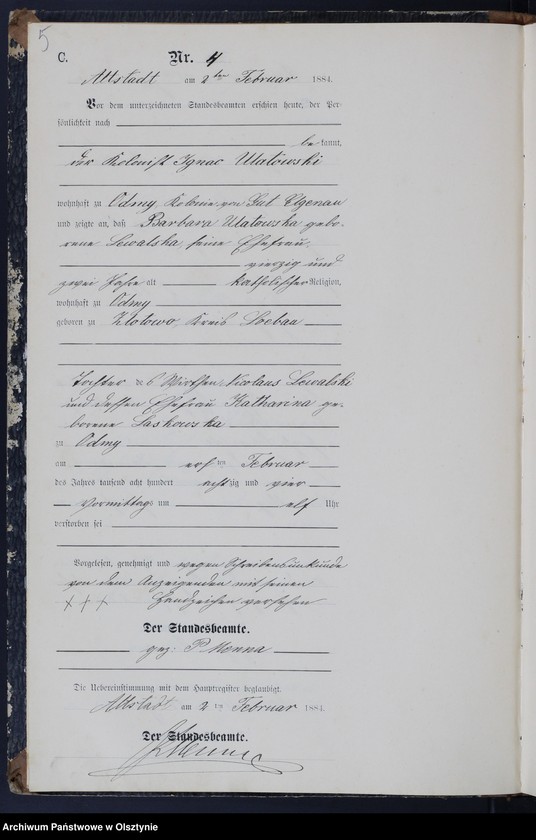 5
C. Nr. 4
Altstadt am 2ten Februar 1884.
Vor dem unterzeichneten Standesbeamten erschien heute, der Per-
sönlichkeit nach
bekannt,
der Kolonist Ignac Ulatowski
wohnhaft zu Odmy, Kolonie von Gut Elgenau
und zeigte an, daß Barbara Ulatowska gebo-
rene Lewalska, seine Ehefrau,
vierzig und
zwei Jahre alt katholischer Religion,
wohnhaft zu Odmy
geboren zu Zlotowo, Kreis Loebau
Tochter des Wirthen Nicolaus Lewalski
und dessen Ehefrau Katharina ge-
borene Laskowska
zu Odmy
am ersten Februar
des Jahres tausend acht hundert achtzig und vier
Vormittags um elf Uhr
verstorben sei
Vorgelesen, genehmigt und wegen Schreibensunkunde
von dem Anzeigenden mit seinen
+ + + Handzeichen versehen
Der Standesbeamte.
gez: P Menna
Die Uebereinstimmung mit dem Hauptregister beglaubigt.
Altstadt am 2ten Februar 1884.
Der Standesbeamte.
Archiwum Państwowe w Olsztynie